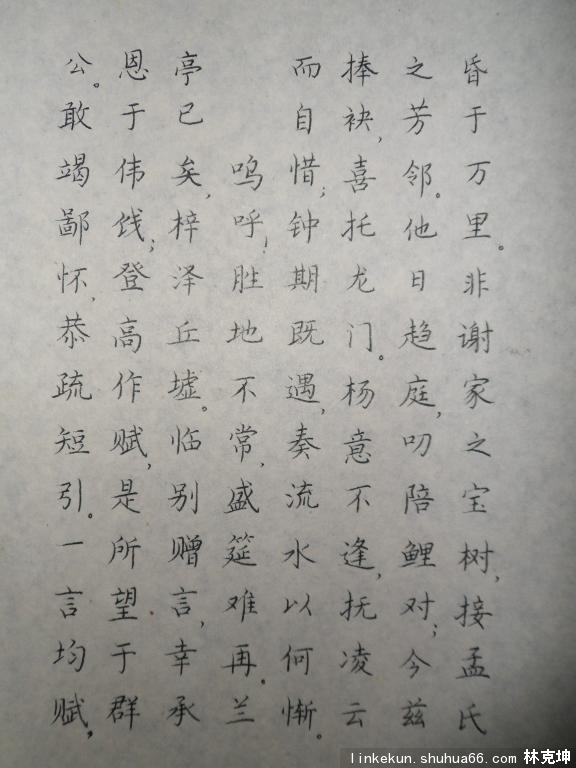 昏于万里。非谢家之宝树，接孟氏
之芳邻。他日趋庭，叨陪鲤对；今兹
捧袂，喜托龙门。杨意不逢，抚凌云
而自惜；钟期既遇，奏流水以何惭。
呜呼，胜地不常，盛筵难再。兰
亭已矣，梓泽丘墟。临别赠言，幸承
恩于伟饯；登高作赋，是所望于群
公。敢竭鄙怀，恭疏短引。一言均赋，
linkekun.shuhua66.com 林克坤